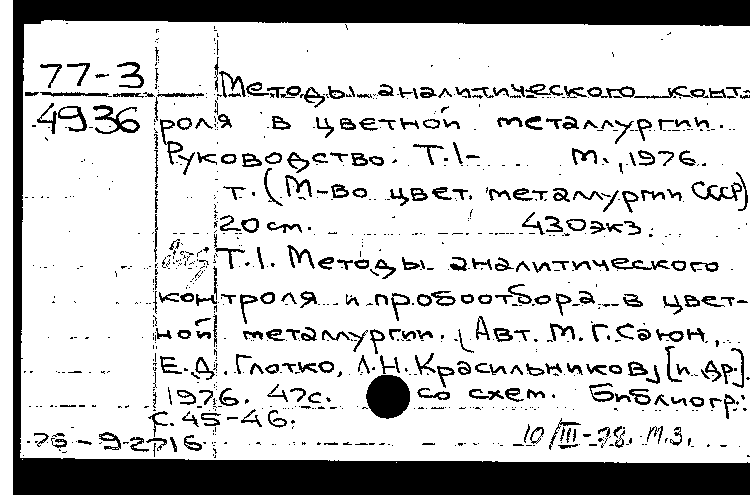 77-3 Методы аналитического конт-
4936 роля в цветной металлургии.
Руководство. Т.1- М., 1976.
т. (М-во цвет. металлургии СССР)
20 см. 430 экз.
Т.1. Методы аналитического
контроля и пробоотбора в цвет-
ной металлургии. (Авт. М.Г. Саюн,
Е.Д. Глотко, Л.Н. Красильников, [и др].
1976. 47 с. со схем. Библиогр:
с. 45-46.
76-9-2716 10/III-78. М.З.